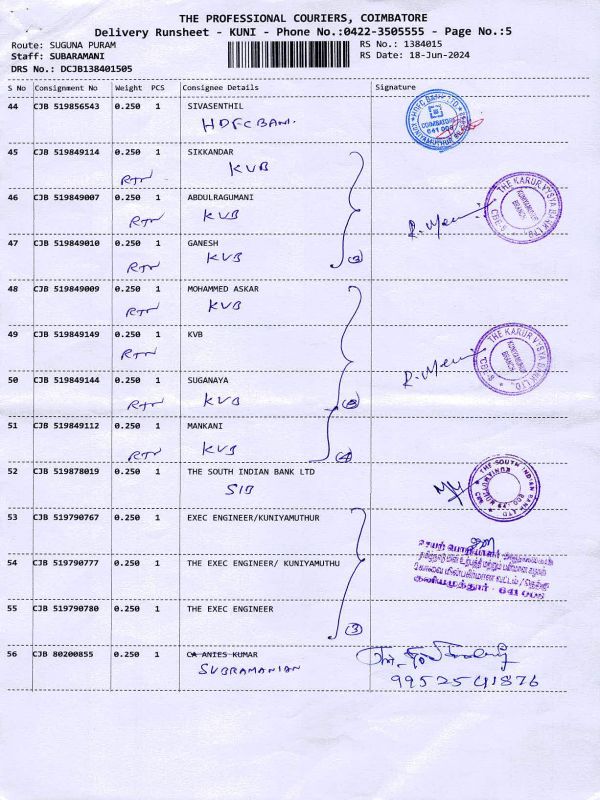 THE PROFESSIONAL COURIERS, COIMBATORE
Delivery Runsheet - KUNI - Phone No.:0422-3505555 - Page No.:5
Route: SUGUNA PURAM
RS No.: 1384015
Staff: SUBARAMANI
RS Date: 18-Jun-2024
DRS No.: DCJB138401505
S No Consignment No Weight PCS Consignee Details Signature
44 CJB 519856543 0.250 1 SIVASENTHIL
HDFC BANK
HDFC BANK LTD
COIMBATORE
45 CJB 519849114 0.250 1 SIKKANDAR
RTN KVB
46 CJB 519849007 0.250 1 ABDULRAGUMANI
RTN KVB
THE KARUR VYSYA BANK LTD.
KUNIYAMUTHUR
BRANCH
CBE-8
47 CJB 519849010 0.250 1 GANESH
RTN KVB
3
48 CJB 519849009 0.250 1 MOHAMMED ASKAR
RTN KVB
49 CJB 519849149 0.250 1 KVB
RTN
THE KARUR VYSYA BANK LTD.
KUNIYAMUTHUR
BRANCH
CBE-8
50 CJB 519849144 0.250 1 SUGANAYA
RTN KVB
51 CJB 519849112 0.250 1 MANKANI
RTN KVB
4
52 CJB 519878019 0.250 1 THE SOUTH INDIAN BANK LTD
SIB
THE SOUTH INDIAN BANK LTD
53 CJB 519790767 0.250 1 EXEC ENGINEER/KUNIYAMUTHUR
54 CJB 519790777 0.250 1 THE EXEC ENGINEER/ KUNIYAMUTHU
55 CJB 519790780 0.250 1 THE EXEC ENGINEER
3
56 CJB 80200855 0.250 1 CA ANIES KUMAR
SUBRAMANIAN
9952541876